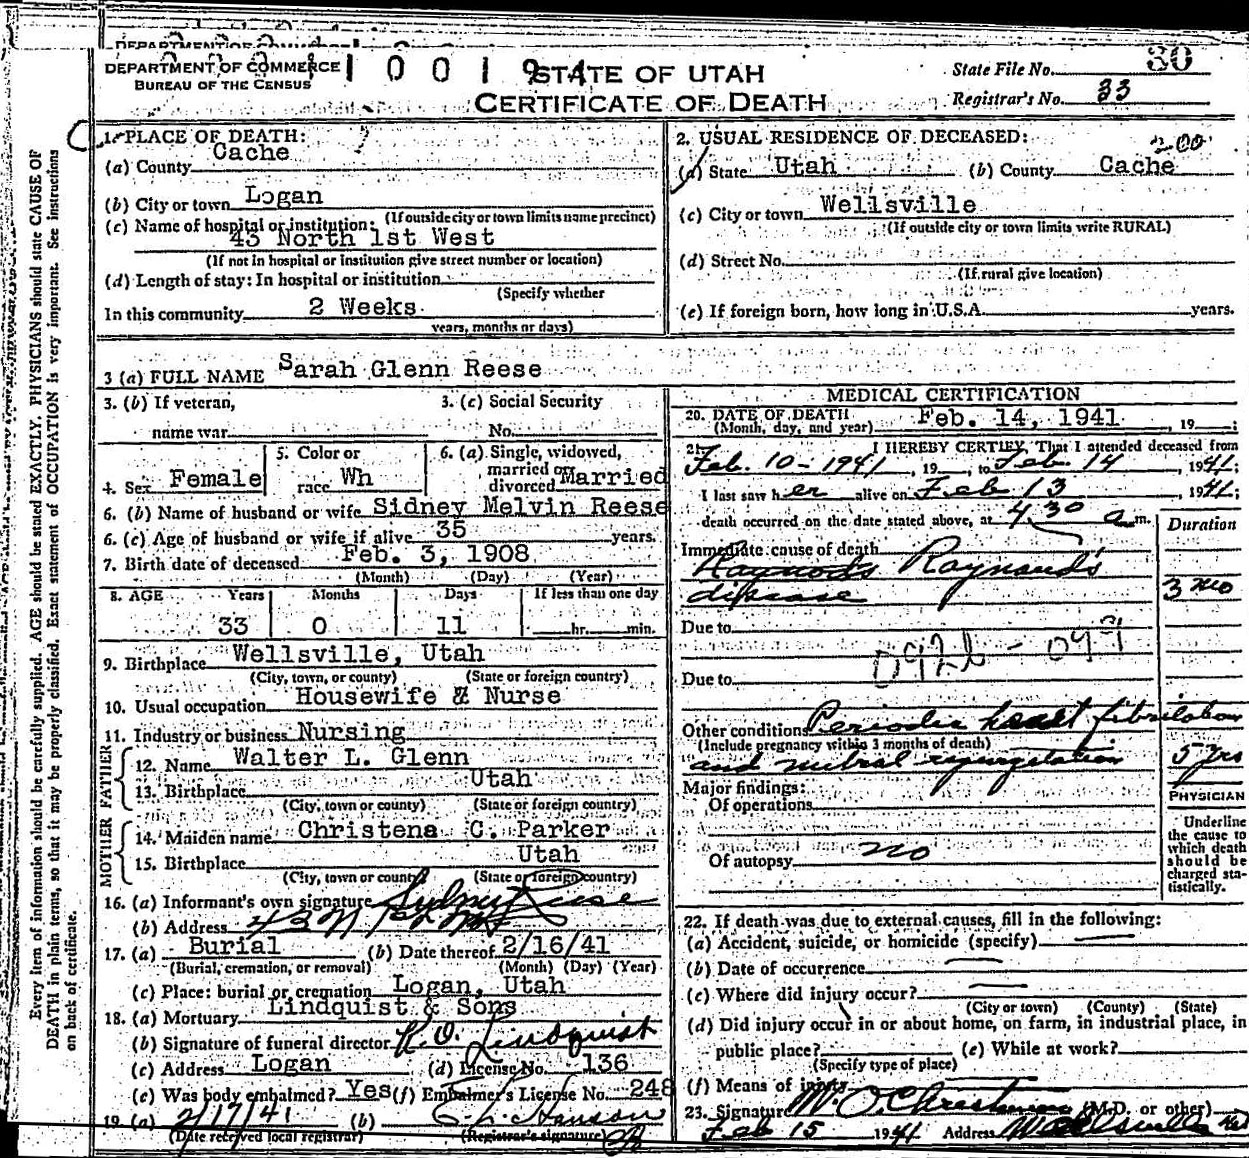 DEPARTMENT OF COMMERCE
BUREAU OF THE CENSUS
1 0 0 1 9 4
STATE OF UTAH
CERTIFICATE OF DEATH
State File No. 30
Registrar's No. 33
1. PLACE OF DEATH:
(a) County Cache
(b) City or town Logan
(If outside city or town limits name precinct)
(c) Name of hospital or institution:
43 North 1st West
(If not in hospital or institution give street number or location)
(d) Length of stay: In hospital or institution
(Specify whether
In this community 2 Weeks
years, months or days)
2. USUAL RESIDENCE OF DECEASED:
200
(a) State Utah (b) County Cache
(c) City or town Wellsville
(If outside city or town limits write RURAL)
(d) Street No.
(If rural give location)
(e) If foreign born, how long in U.S.A. years.
3 (a) FULL NAME Sarah Glenn Reese
3. (b) If veteran, name war
3. (c) Social Security No.
4. Sex Female
5. Color or race Wh
6. (a) Single, widowed, married or divorced Married
6. (b) Name of husband or wife Sidney Melvin Reese
6. (c) Age of husband or wife if alive 35 years.
7. Birth date of deceased Feb. 3, 1908
(Month) (Day) (Year)
8. AGE Years Months Days If less than one day
33 0 11 hr. min.
9. Birthplace Wellsville, Utah
(City, town, or county) (State or foreign country)
10. Usual occupation Housewife & Nurse
11. Industry or business Nursing
FATHER
12. Name Walter L. Glenn
13. Birthplace Utah
(City, town or county) (State or foreign country)
MOTHER
14. Maiden name Christena C. Parker
15. Birthplace Utah
(City, town or county) (State or foreign country)
16. (a) Informant's own signature Sydney Reese
(b) Address 43 N 1st West
17. (a) Burial (b) Date thereof 2/16/41
(Burial, cremation, or removal) (Month) (Day) (Year)
(c) Place: burial or cremation Logan, Utah
18. (a) Mortuary Lindquist & Sons
(b) Signature of funeral director Lindquist
(c) Address Logan (d) License No. 136
(e) Was body embalmed? Yes (f) Embalmer's License No. 248
19. (a) 2/17/41 (b) Hanson
(Date received local registrar) (Registrar's signature)
MEDICAL CERTIFICATION
20. DATE OF DEATH Feb. 14, 1941, 19 ;
(Month, day, and year)
21. I HEREBY CERTIFY, That I attended deceased from
Feb. 10-1941, 19 , to Feb. 14 1941;
I last saw her alive on Feb 13 1941;
death occurred on the date stated above, at 4 30 a m.
Duration
Immediate cause of death
Raynods Raynaud's
disease 3 mo
Due to
092b - 099
Due to
Other conditions Periodic heart fibrilation
(Include pregnancy within 3 months of death)
and mitral regurgitation 5 yrs
Major findings:
Of operations
Of autopsy no
PHYSICIAN
Underline the cause to which death should be charged statistically.
22. If death was due to external causes, fill in the following:
(a) Accident, suicide, or homicide (specify)
(b) Date of occurrence
(c) Where did injury occur?
(City or town) (County) (State)
(d) Did injury occur in or about home, on farm, in industrial place, in
public place? (e) While at work?
(Specify type of place)
(f) Means of injury
23. Signature (M.D. or other)
Feb 15 1941 Address Wellsville
Every item of information should be carefully supplied. AGE should be stated EXACTLY. PHYSICIANS should state CAUSE OF
DEATH in plain terms, so that it may be properly classified. Exact statement of OCCUPATION is very important. See instructions
on back of certificate.